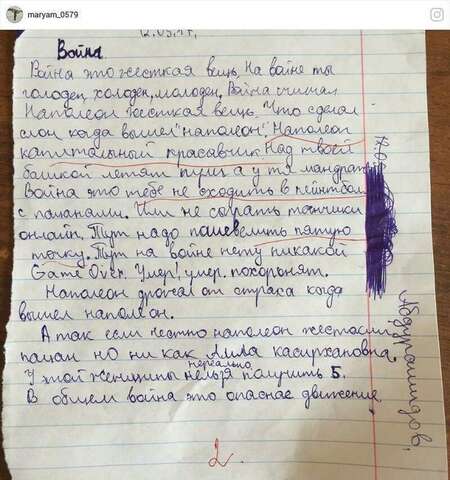 maryam_0579
12.05.17г.
Война
Война это жесткая вещь, На войне ты
голоден, холоден, молоден, Война считал
Наполеон жесткая вещь. Что сделал
слон когда вышел "наполеон". Наполеон
капитальный красавчик. Над твоей
башкой летят пули а у тя мандраж
война это тебе не сходить в пейнтбол
с пацанами. Или не сыграть танчики
онлайн. Тут надо пашевелить пятую
точку. Тут на войне нету никакой
Game Over. Умер! умер, похоронят.
Наполеон дрожал от страса когда
вышел наполеон.
А так если честно наполеон
пацан но ни как Алла касирхановна.
У этой женщины нельзя палучить 5.
нереально
В общем война это опаснае движение
2